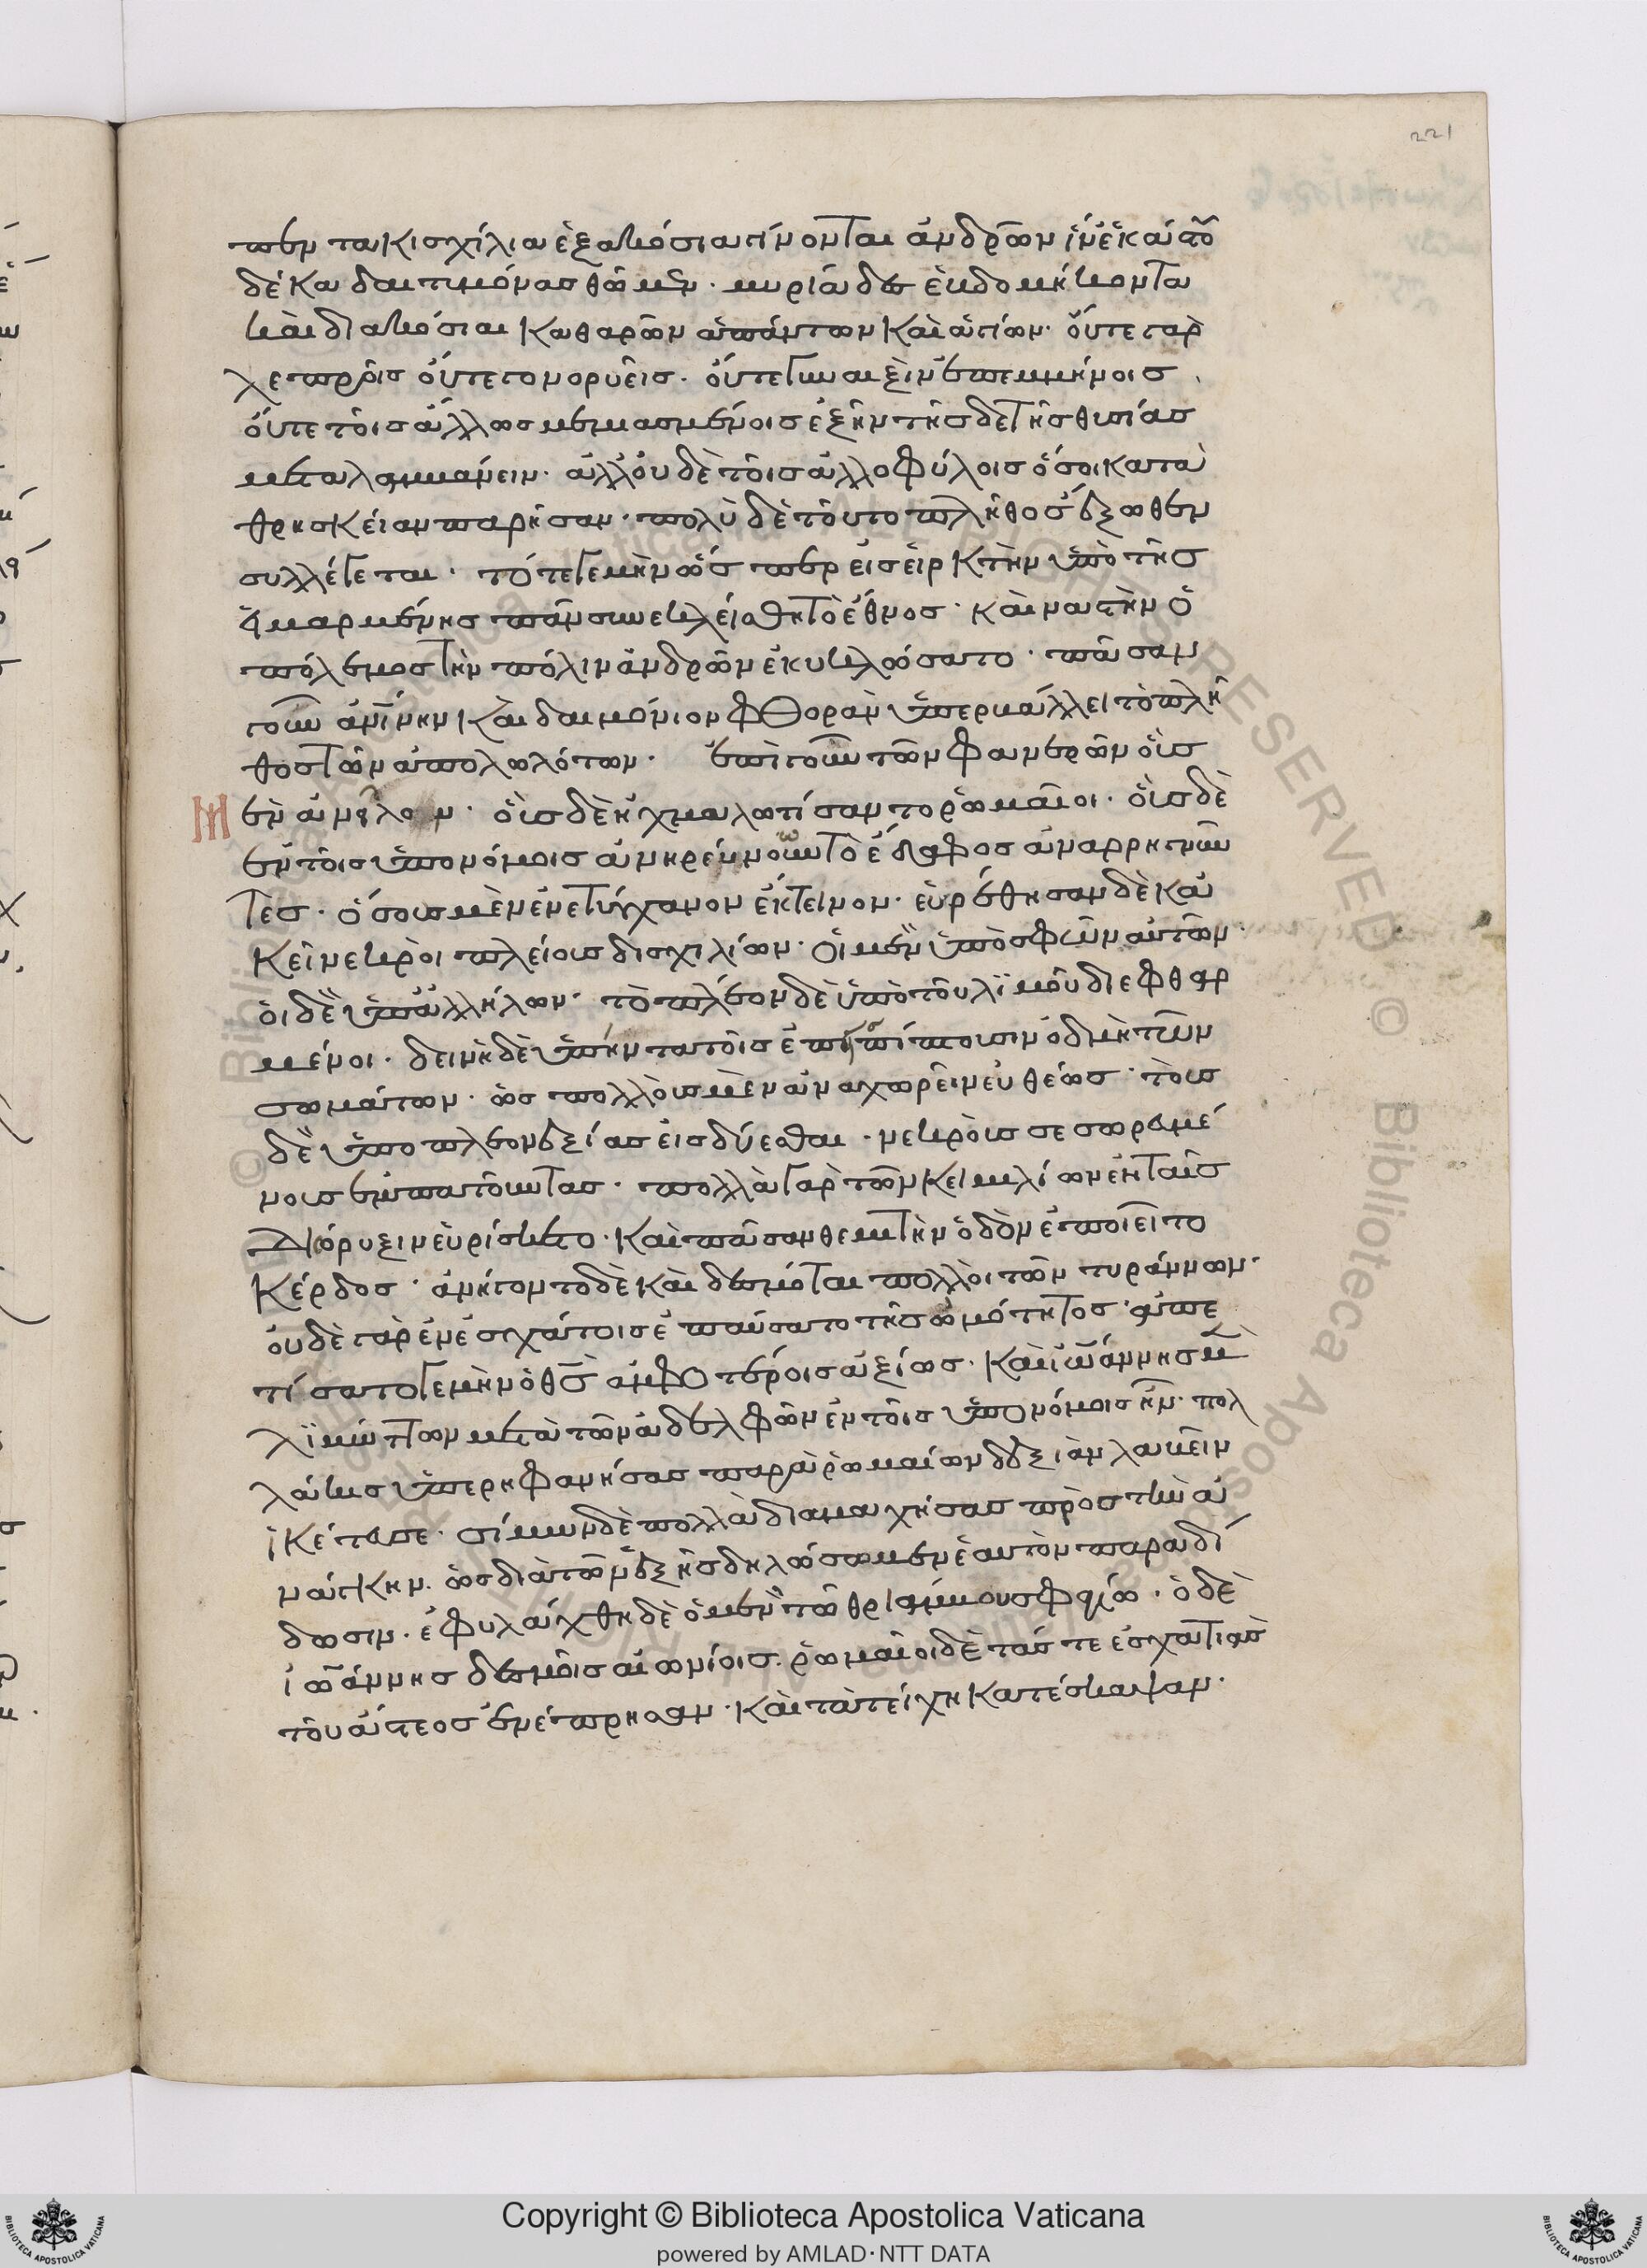 221
πεντακισχίλια ἑξακόσια γίνονται ἀνδρῶν ἵν' ἑκάστου
δέκα δαιτυμόνας θῶμεν· μυριάδες ἑβδομήκοντα
καὶ διακόσιαι καθαρῶν ἁπάντων καὶ ἁγίων· οὔτε γὰρ
λεπροῖς οὔτε γονορυεῖς· οὔτε γυναιξὶν ἐπεμμήνοις
οὔτε τοῖς ἄλλως μεμιασμένοις ἐξῆν τῆσδε τῆς θυσίας
μεταλαμβάνειν· ἀλλ' οὐδὲ τοῖς ἀλλοφύλοις ὅσοι κατὰ
θρησκείαν παρῆσαν· πολὺ δὲ τοῦτο πλῆθος ἔξωθεν
συλλέγεται· τότε γε μὴν ὥσπερ εἰς εἱρκτὴν ὑπὸ τῆς
εἱμαρμένης πᾶν συνεκλείσθη τὸ ἔθνος· καὶ ναστὴν ὁ
πόλεμος τὴν πόλιν ἀνδρῶν ἐκυκλώσατο· πᾶσαν
γοῦν ἀνθίνην καὶ δαιμόνιον φθορὰν ὑπερβάλλει τὸ πλῆ
θος τῶν ἀπολωλότων· ἐπὶ γοῦν τῶν φανερῶν οἷς
ἐν ἀνεῖλον· οὓς δὲ ἠχμαλωτίσαντο ῥωμαῖοι· οὓς δὲ
ἐν τοῖς ὑπονόμοις ἀνηρεύνουν τὸ ἔδαφος ἀναρρηγνῦν
τες· ὅσοις μὲν ἐνετύγχανον ἔκτεινον· εὑρέθησαν δὲ κἀ
κεῖ νεκροὶ πλείους δισχιλίων· οἱ μὲν ὑπὸ σφῶν αὐτῶν·
οἱ δὲ ὑπ' ἀλλήλων· τὸ πλέον δὲ ὑπὸ τοῦ λιμοῦ διεφθαρ
μένοι· δεινὴ δὲ ὑπήντα τοῖς ἐπεισπίπτουσιν ὀδμὴ τῶν
σωμάτων· ὡς πολλοὺς μὲν ἀναχωρεῖν εὐθέως· τοὺς
δὲ ὑπὸ πλεονεξίας εἰσδύεσθαι· νεκροὺς σεσωρευμέ
νους ἐμπατοῦντας· πολλὰ γὰρ τῶν κειμηλίων ἐν ταῖς
διώρυξιν εὑρίσκετο· καὶ πᾶσαν θεμιτὴν ὁδὸν ἐποιεῖτο
κέρδος· ἀνήγοντο δὲ καὶ δεσμῶται πολλοὶ τῶν τυράννων·
οὐδὲ γὰρ ἐν ἐσχάτοις ἐπαύσαντο τῆς ὠμότητος· ἀπε
τίσατό γε μὴν ὁ θς ἀμφοτέροις ἀξίως· καὶ ἰωάννης μὲν
λιμώττων μετὰ τῶν ἀδελφῶν ἐν τοῖς ὑπονόμοις ἦν· πολ
λάκις ὑπερηφανήσας παρὰ ῥωμαίων δεξιὰν λαβεῖν
ἱκέτευσε· σίμων δὲ πολλὰ διαμαχήσας πρὸς τὴν ἀ
νάγκην· ὡς διὰ τῶν ἑξῆς δηλώσωμεν ἑαυτὸν παραδί
δωσιν· ἐφυλάχθη δὲ ὁ μὲν τῶ θριάμβου σφαγίω· ὁ δὲ
ἰωάννης δεσμοῖς αἰωνίοις· ῥωμαῖοι δὲ τάς τε ἐσχατιὰς
τοῦ ἄστεος ἐνέπρησαν· καὶ τὰ τείχη κατέσκαψαν·
Copyright © Biblioteca Apostolica Vaticana
powered by AMLAD·NTT DATA